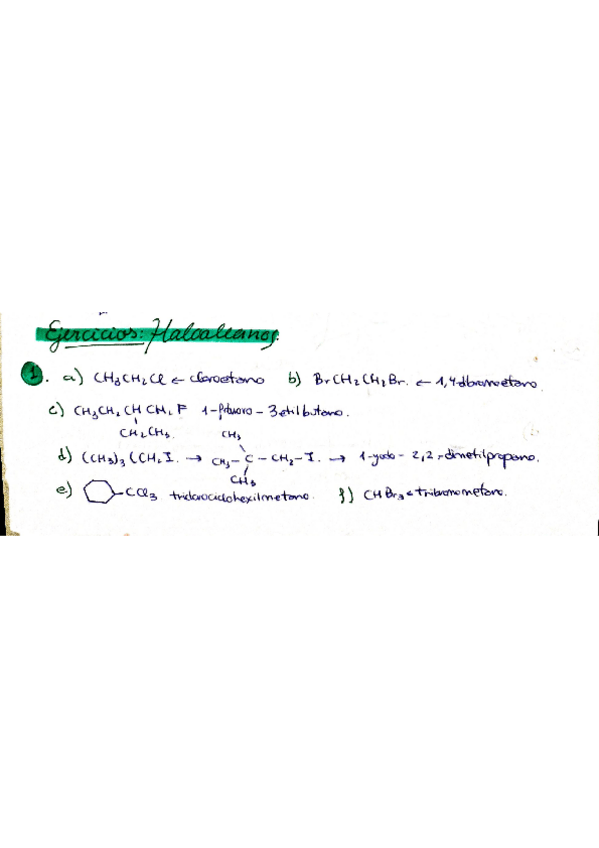 Ejercicios: Haloalcanos.
1. a) CH3CH2Cl ← cloroetano b) BrCH2CH2Br. ← 1,4-dibromoetano.
c) CH3CH2CHCH2F 1-fluoro-3etilbutano.
CH2CH3. CH3
d) (CH3)3CCH2I. → CH3-C-CH2-I. → 1-yodo-2,2-dimetilpropano.
CH3
e) -CCl3 triclorociclohexilmetano. f) CHBr3 ← tribromometano.